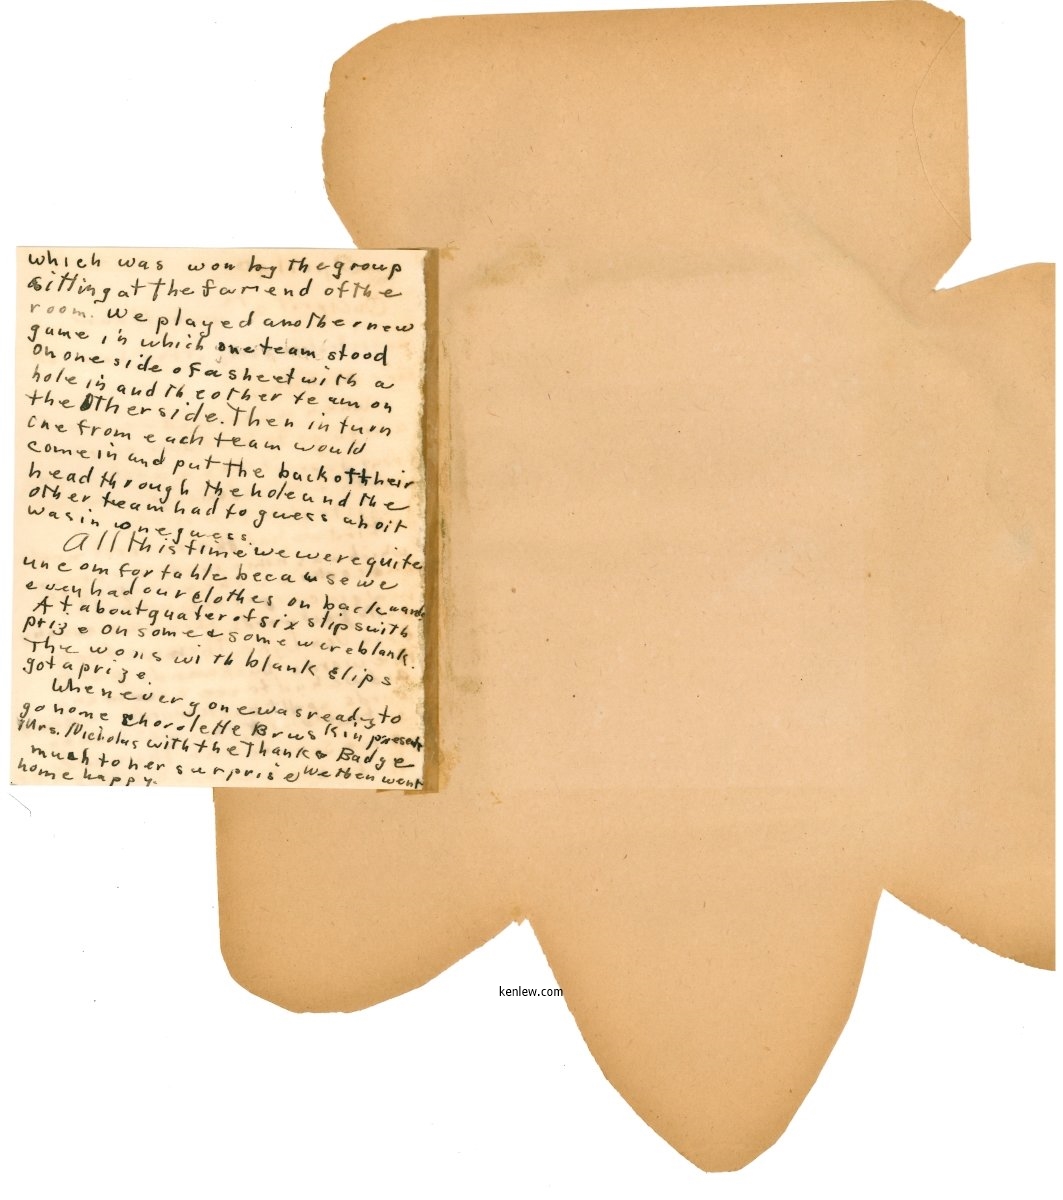 which was won by the group
sitting at the far end of the
room. We played another new
game in which one team stood
on one side of a sheet with a
hole in and the other team on
the other side. Then in turn
one from each team would
come in and put the back of their
head through the hole and the
other team had to guess who it
was in one guess.
All this time we were quite
uncomfortable because we
even had our clothes on backwards
At about quater of six slips with
prize on some & some were blank.
The wons with blank slips
got a prize.
When everyone was ready to
go home Chorolette Bruskin present
Mrs. Nicholas with the Thanks Badge
much to her surprise We then went
home happy.
kenlew.com